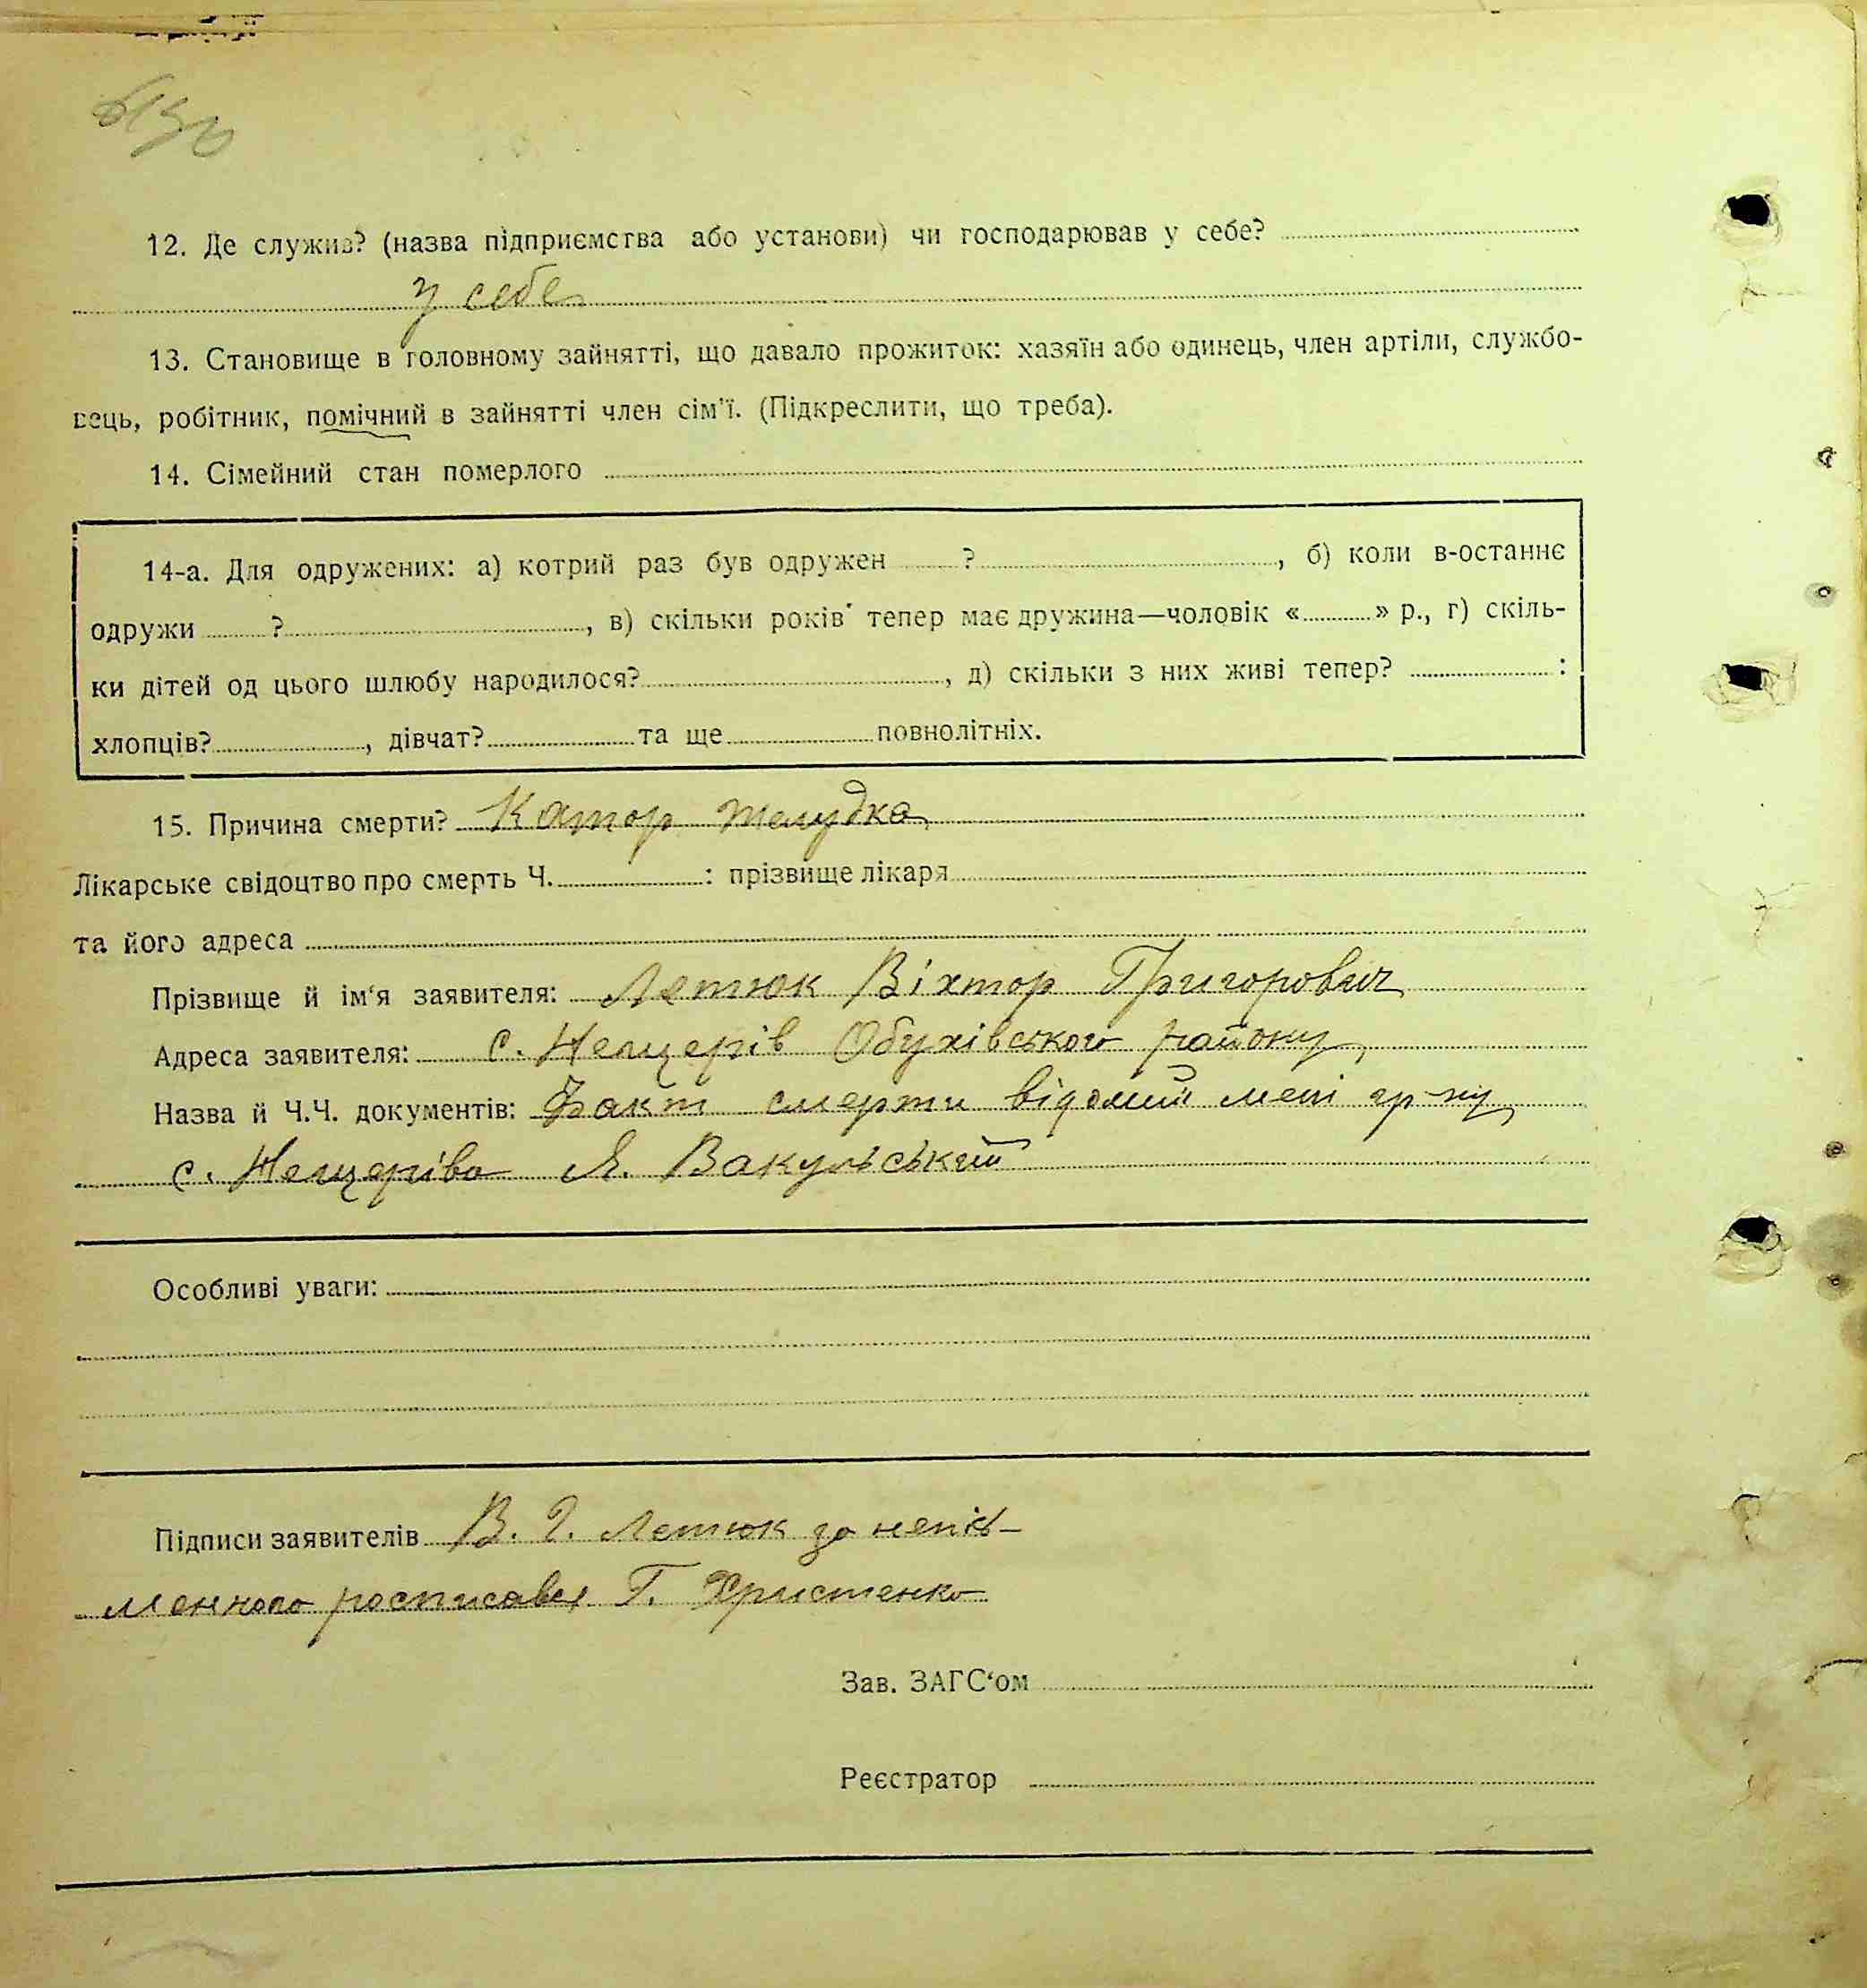 12. Де служив? (назва підприємства або установи) чи господарював у себе?
у себе
13. Становище в головному зайнятті, що давало прожиток: хазяїн або одинець, член артіли, службо-
вець, робітник, помічний в зайнятті член сім'ї. (Підкреслити, що треба).
14. Сімейний стан померлого
14-а. Для одружених: а) котрий раз був одружен ? , б) коли в-останнє
одружи ? , в) скільки років тепер має дружина—чоловік « » р., г) скіль-
ки дітей од цього шлюбу народилося? , д) скільки з них живі тепер? :
хлопців? , дівчат? та ще повнолітніх.
15. Причина смерти? Катар желудка
Лікарське свідоцтво про смерть Ч. : прізвище лікаря
та його адреса
Прізвище й ім‘я заявителя: Летюк Віктор Григорович
Адреса заявителя: с. Нещерів Обухівського району
Назва й Ч.Ч. документів: Факт смерти відомий мені гр-ну
с. Нещеріва Я. Вакульський
Особливі уваги:
Підписи заявителів В. Г. Летюк за непись-
менного росписався Г. Христенко
Зав. ЗАГС‘ом
Реєстратор